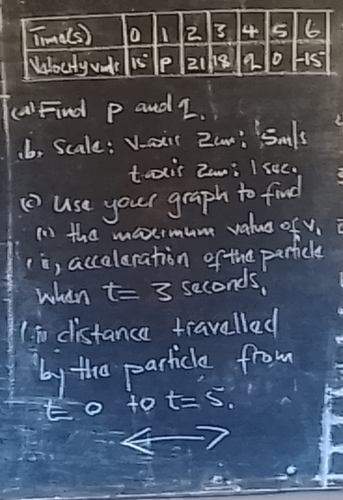 Time(s) 0 1 2 3 4 5 6
Velocity v m/s 15 p 21 18 q 0 -15
(a) Find p and q.
b, Scale: V-axis 2cm: 5m/s
t-axis 2cm: 1 sec.
(c) Use your graph to find
(i) the maximum value of v,
ii, acceleration of the particle
when t = 3 seconds,
iii distance travelled
by the particle from
t = 0 to t = 5.